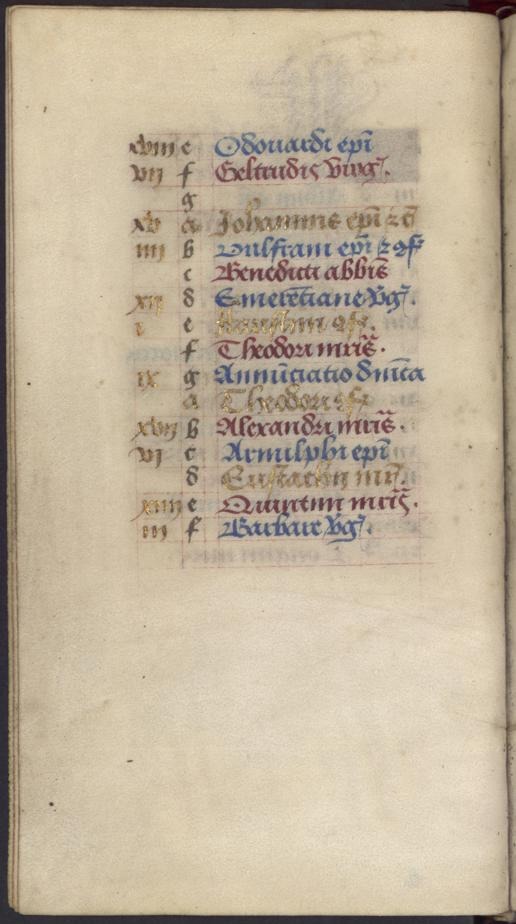 xviii e Odouardi epi
vii f Geltrudis virg.
g
xv a Johannis epi z c
iiii b Vulfrani epi z 9f
c Benedicti abbis
xii d Emerenciane vg.
i e 9f.
f Theodori mris.
ix g Annuciatio dnica
a Theodori 9f
xvii b Alexandri mris.
vi c Arnulphi epi
d Eustachii mr.
xiiii e Quintini mris.
iii f Barbare vg.